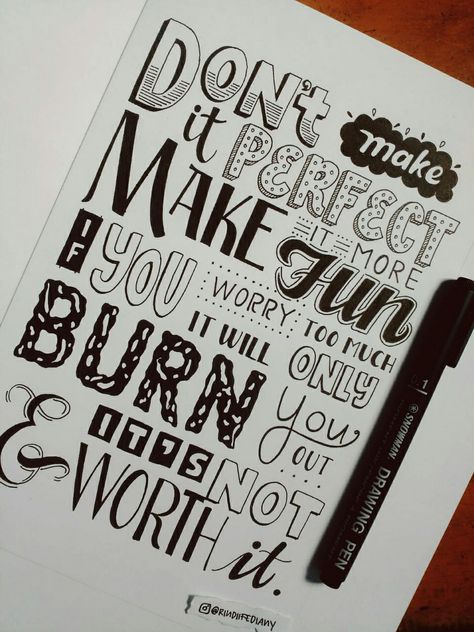 DON't make
it PERFECT
MAKE IT MORE FUN
IF YOU WORRY TOO MUCH
IT WILL ONLY
BURN you OUT
& IT'S NOT
WORTH it.
1
SNOWMAN
DRAWING PEN